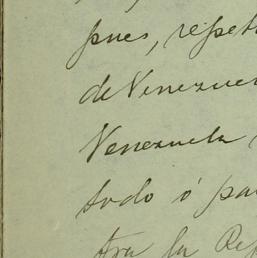 pues, repet
de Venezuel
Venezuela
todo ó pa
tra la Rep